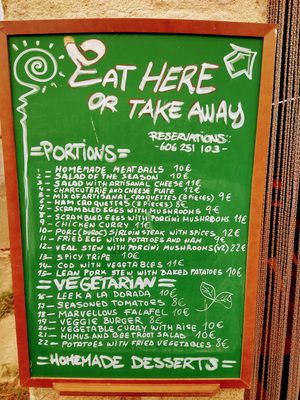 EAT HERE
OR TAKE AWAY
RESERVATIONS:
-606 251 103-
=PORTIONS=
1 - HOMEMADE MEATBALLS 10€
2 - SALAD OF THE SEASON 10€
3 - SALAD WITH ARTISANAL CHEESE 11€
4 - CHARCUTERIE AND CHEESE PLATO 12€
5 - MIX OF ARTISANAL CROQUETTES (8 PIECES) 9€
6 - HAM CROQUETTES (8 PIECES) 8€
7 - SCRAMBLED EGGS WITH MUSHROOMS 9€
8 - SCRAMBLED EGGS WITH PORCINI MUSHROOMS 11€
9 - CHICKEN CURRY 11€
10 - PORC (DUROC) SIRLOIN STEAK WITH SPICES 12€
11 - FRIED EGG WITH POTATOES AND HAM 9€
12 - VEAL STEW WITH PORCINI MUSHROOMS 22€
13 - SPICY TRIPE 10€
14 - COD WITH VEGETABLES 11€
15 - LEAN PORK STEW WITH BAKED POTATOES 10€
=VEGETARIAN=
16 - LEEK A LA DORADA 10€
17 - SEASONED TOMATOES 8€
18 - MARVELLOUS FALAFEL 10€
19 - VEGGIE BURGER 8€
20 - VEGETABLE CURRY WITH RICE 10€
21 - HUMUS AND BEETROOT SALAD 10€
22 - POTATOES WITH FRIED VEGETABLES 8€
=HOMEMADE DESSERTS=